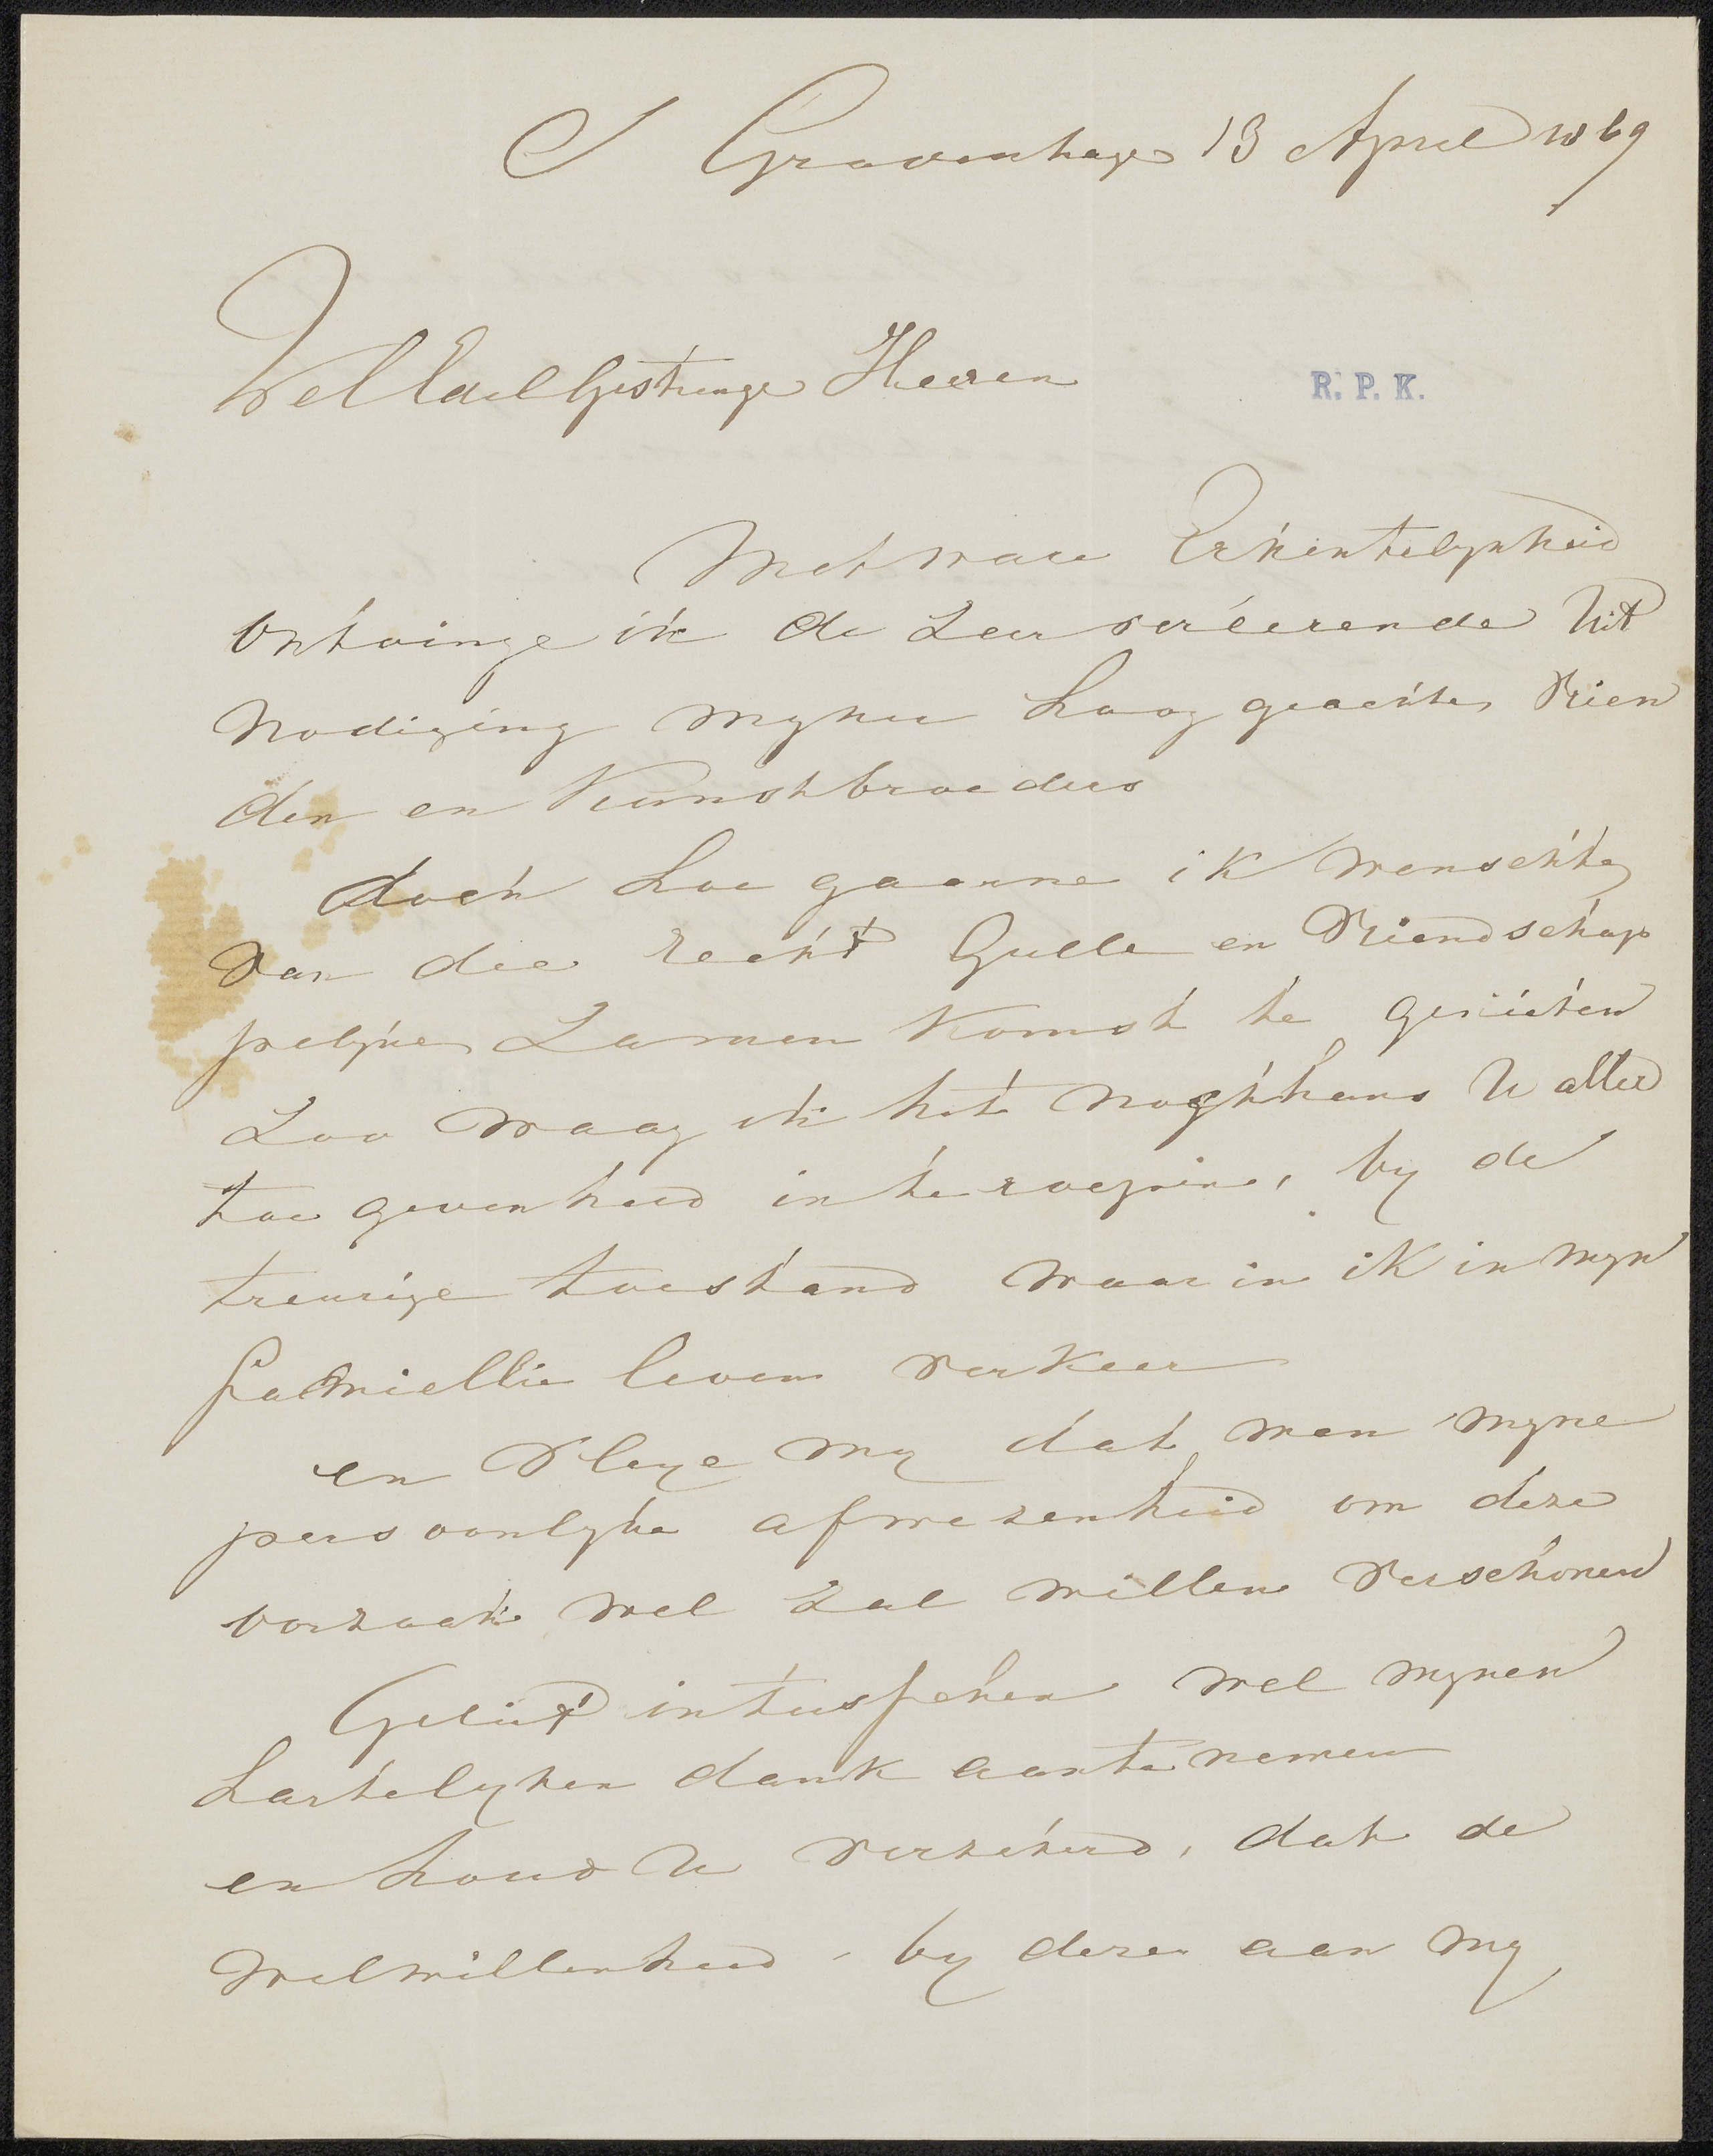 S Gravenhage 13 April 1869
WelEdelGestrenge Heeren
R. P. K.
Met ware Erkentelykheid
ontvinge ik de Zeer verëerende Uit
nodiging myner hoog geachte Vrien
den en Kunstbroeders
doch hoe gaarne ik wenschte
van die recht Gulle en Vriendschap
pelyke Zamen Komst te genieten
Zoo waag ik het nogthans U aller
toe gevenheid in te roepen, by de
treurige toestand waar in ik in myn
famiellie leven verkeer
en Vleye my dat men myne
persoonlyke afwezenheid om deze
oorzaak wel zal willen verschonen
Gelieft intusschen wel mynen
hartelyken dank aan te nemen
en houd U verzekerd, dat de
welwillenheid - by deze aan my